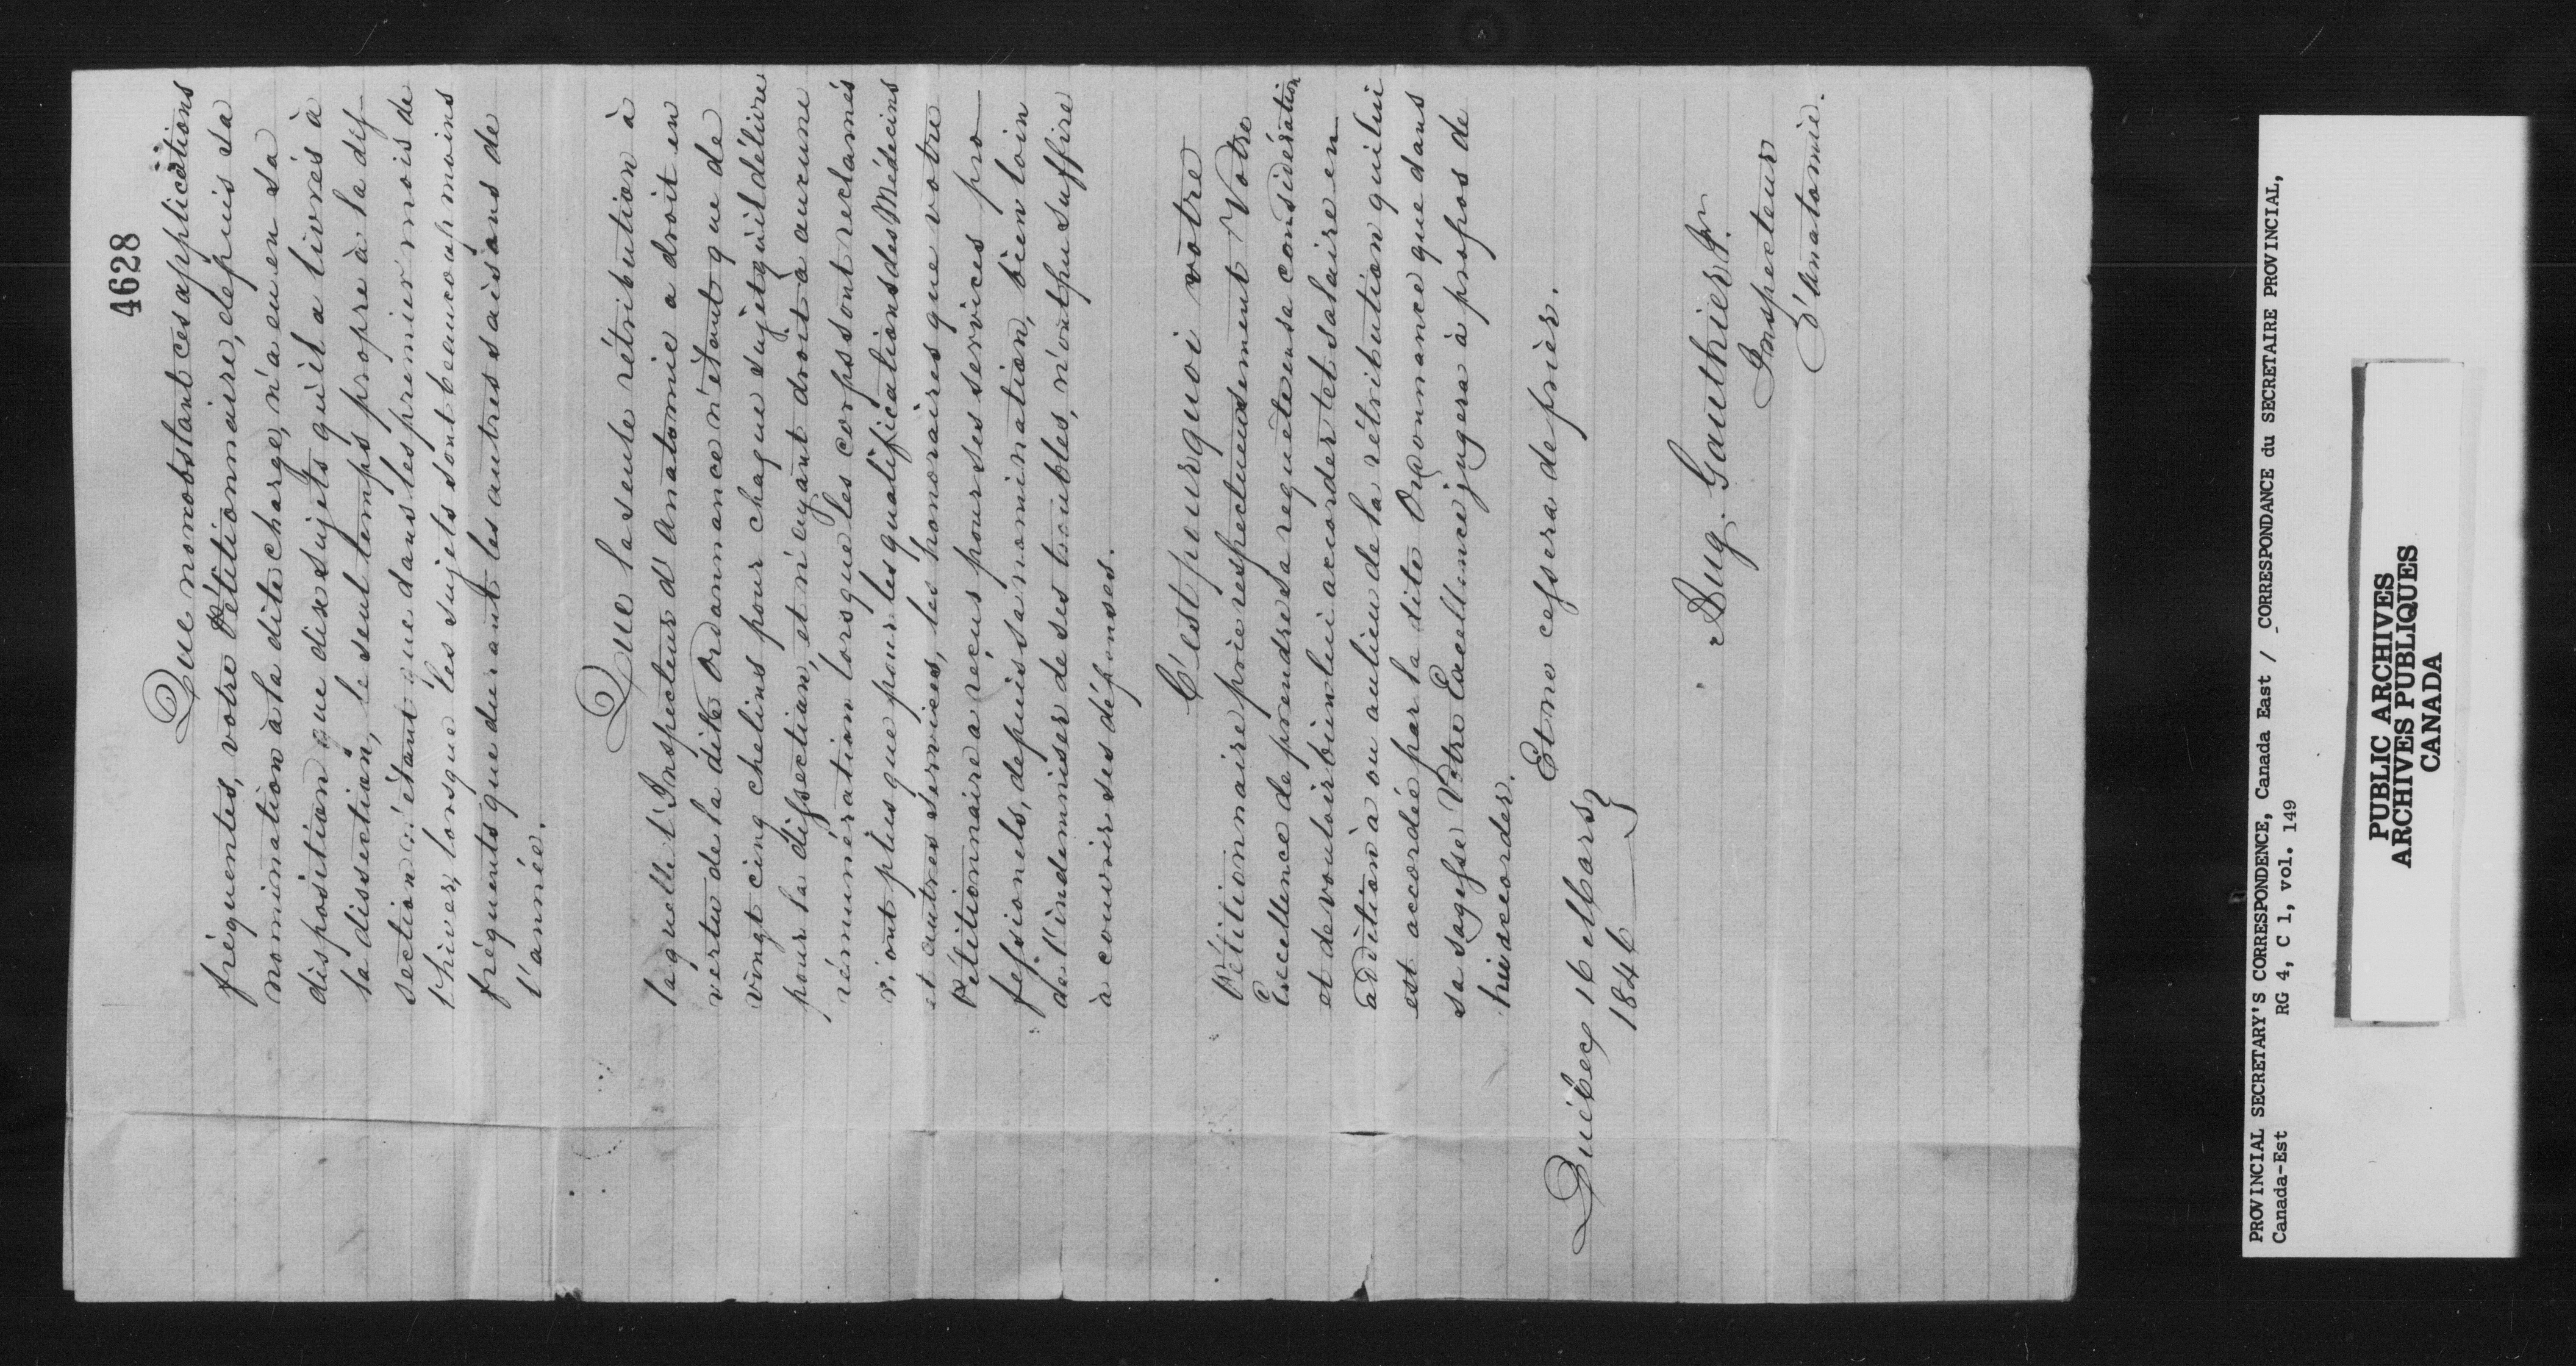 4628
Que nonobstant ces applications
fréquentes, votre Pétitionnaire, depuis sa
nomination à la dite charge, n'a eu en sa
disposition que dix sujets qu'il a livrés à
la dissection, le seul temps propre à la dis-
section n'étant que dans les premiers mois de
l'hiver, lorsque les sujets sont beaucoup moins
fréquents que durant les autres saisons de
l'année.
Que la seule rétribution à
laquelle l'Inspecteur d'Anatomie a droit en
vertu de la dite Ordonnance n'étant que de
vingt cinq chelins pour chaque sujet qu'il délivre
pour la dissection, et n'ayant droit à aucune
rémunération lorsque les corps sont reclamés
non plus que pour les qualifications des Médecins
et autres services, les honoraires que votre
Pétitionnaire a reçus pour ses services pro-
fessionels, depuis sa nomination, bien loin
de l'indemniser de ses troubles, n'ont pu suffire
à couvrir ses dépenses.
C'est pourquoi votre
Pétitionnaire prie respectueusement Votre
Excellence de prendre sa requête en sa considération
et de vouloir bien lui accorder tel salaire en
addition à ou au lieu de la rétribution qui lui
est accordée par la dite Ordonnance que dans
sa sagesse Votre Excellence jugera à propos de
lui accorder.
Et ne cessera de prier.
Québec 16 Mars
1846
Aug. Gauthier Jr.
Inspecteur
D'anatomie.
PROVINCIAL SECRETARY'S CORRESPONDENCE, Canada East / CORRESPONDANCE du SECRETAIRE PROVINCIAL,
Canada-Est RG 4, C 1, vol. 149
PUBLIC ARCHIVES
ARCHIVES PUBLIQUES
CANADA